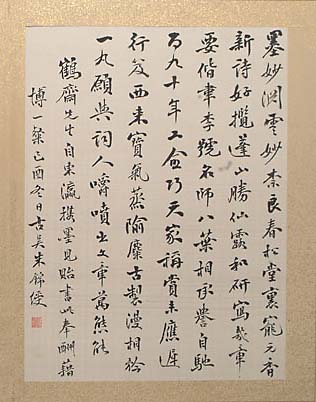 墨妙淵雲妙奈良春松堂裏寵元香
新詩好攬蓬山勝仙露和研寫幾章
要偕韋李號名師八葉相承譽自馳
百九十年工愈巧天家稱賞未應遲
行笈西來寶氣蒸隃麋古製漫相矜
一丸願與詞人嚼噴出文章萬態能
鶴齋先生自東瀛携墨見貽書此奉酬藉
博一粲己酉冬日古吳朱錦綬